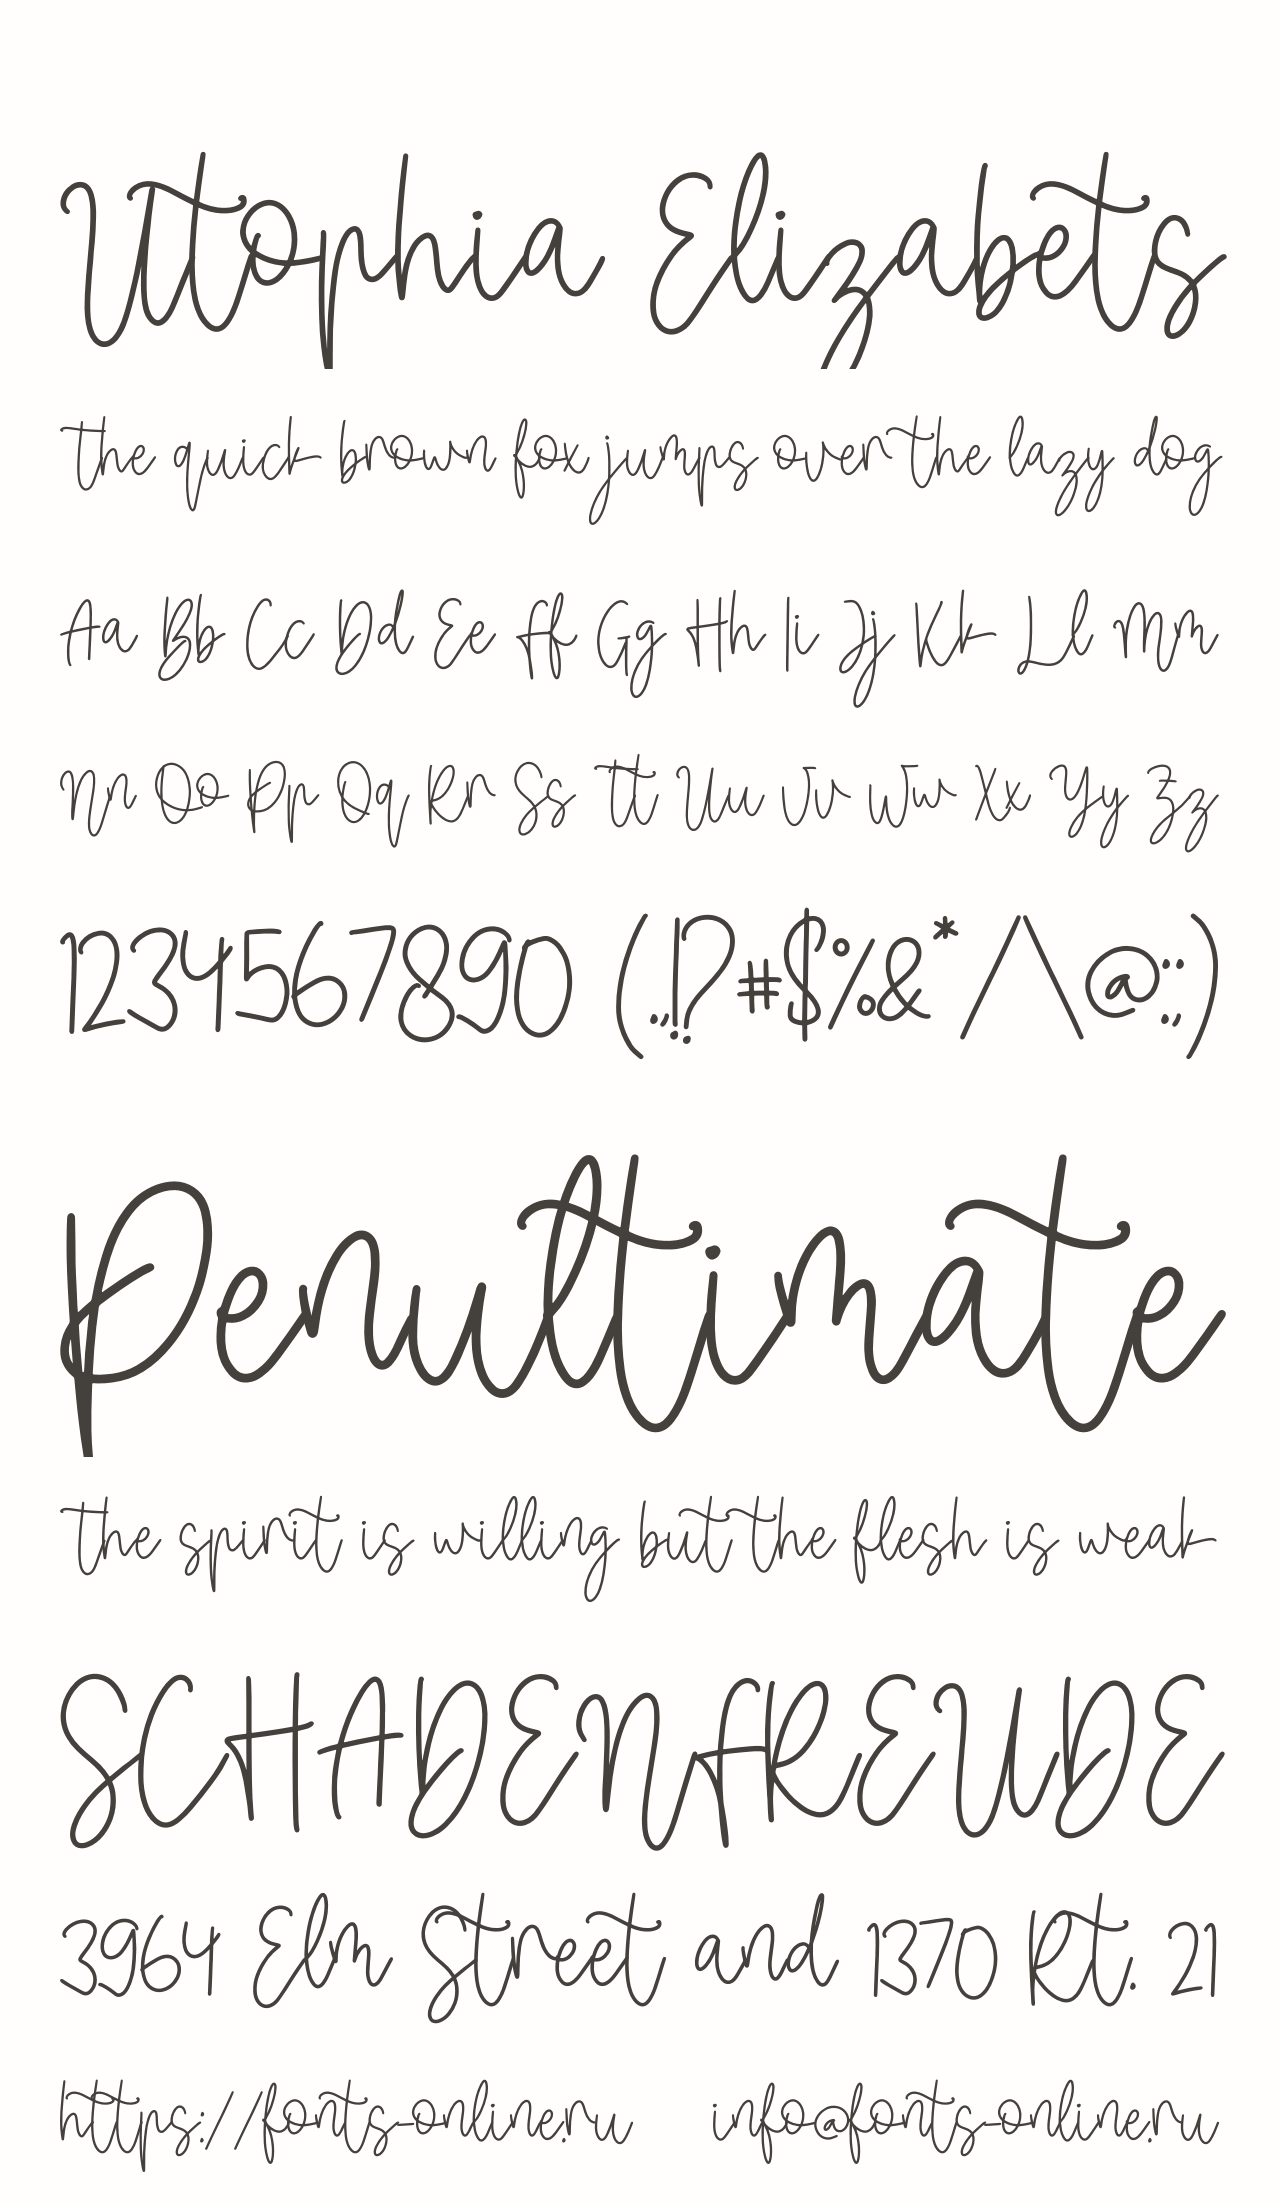 Utophia Elizabets
the quick brown fox jumps over the lazy dog
Aa Bb Cc Dd Ee Ff Gg Hh Ii Jj Kk Ll Mm
Nn Oo Pp Qq Rr Ss Tt Uu Vv Ww Xx Yy Zz
1234567890 (.,!?#$%&*/\@":;)
Penultimate
the spirit is willing but the flesh is weak
SCHADENFREUDE
3964 Elm Street and 1370 Rt. 21
https://fonts-online.ru info@fonts-online.ru